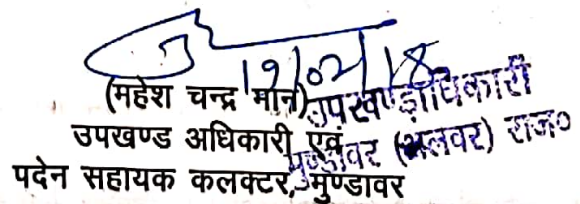 19/02/18
(महेश चन्द्र मान)
उपखण्ड अधिकारी एवं
पदेन सहायक कलक्टर, मुण्डावर
उपखण्ड़ाधिकारी
मुण्डावर (अलवर) राज०